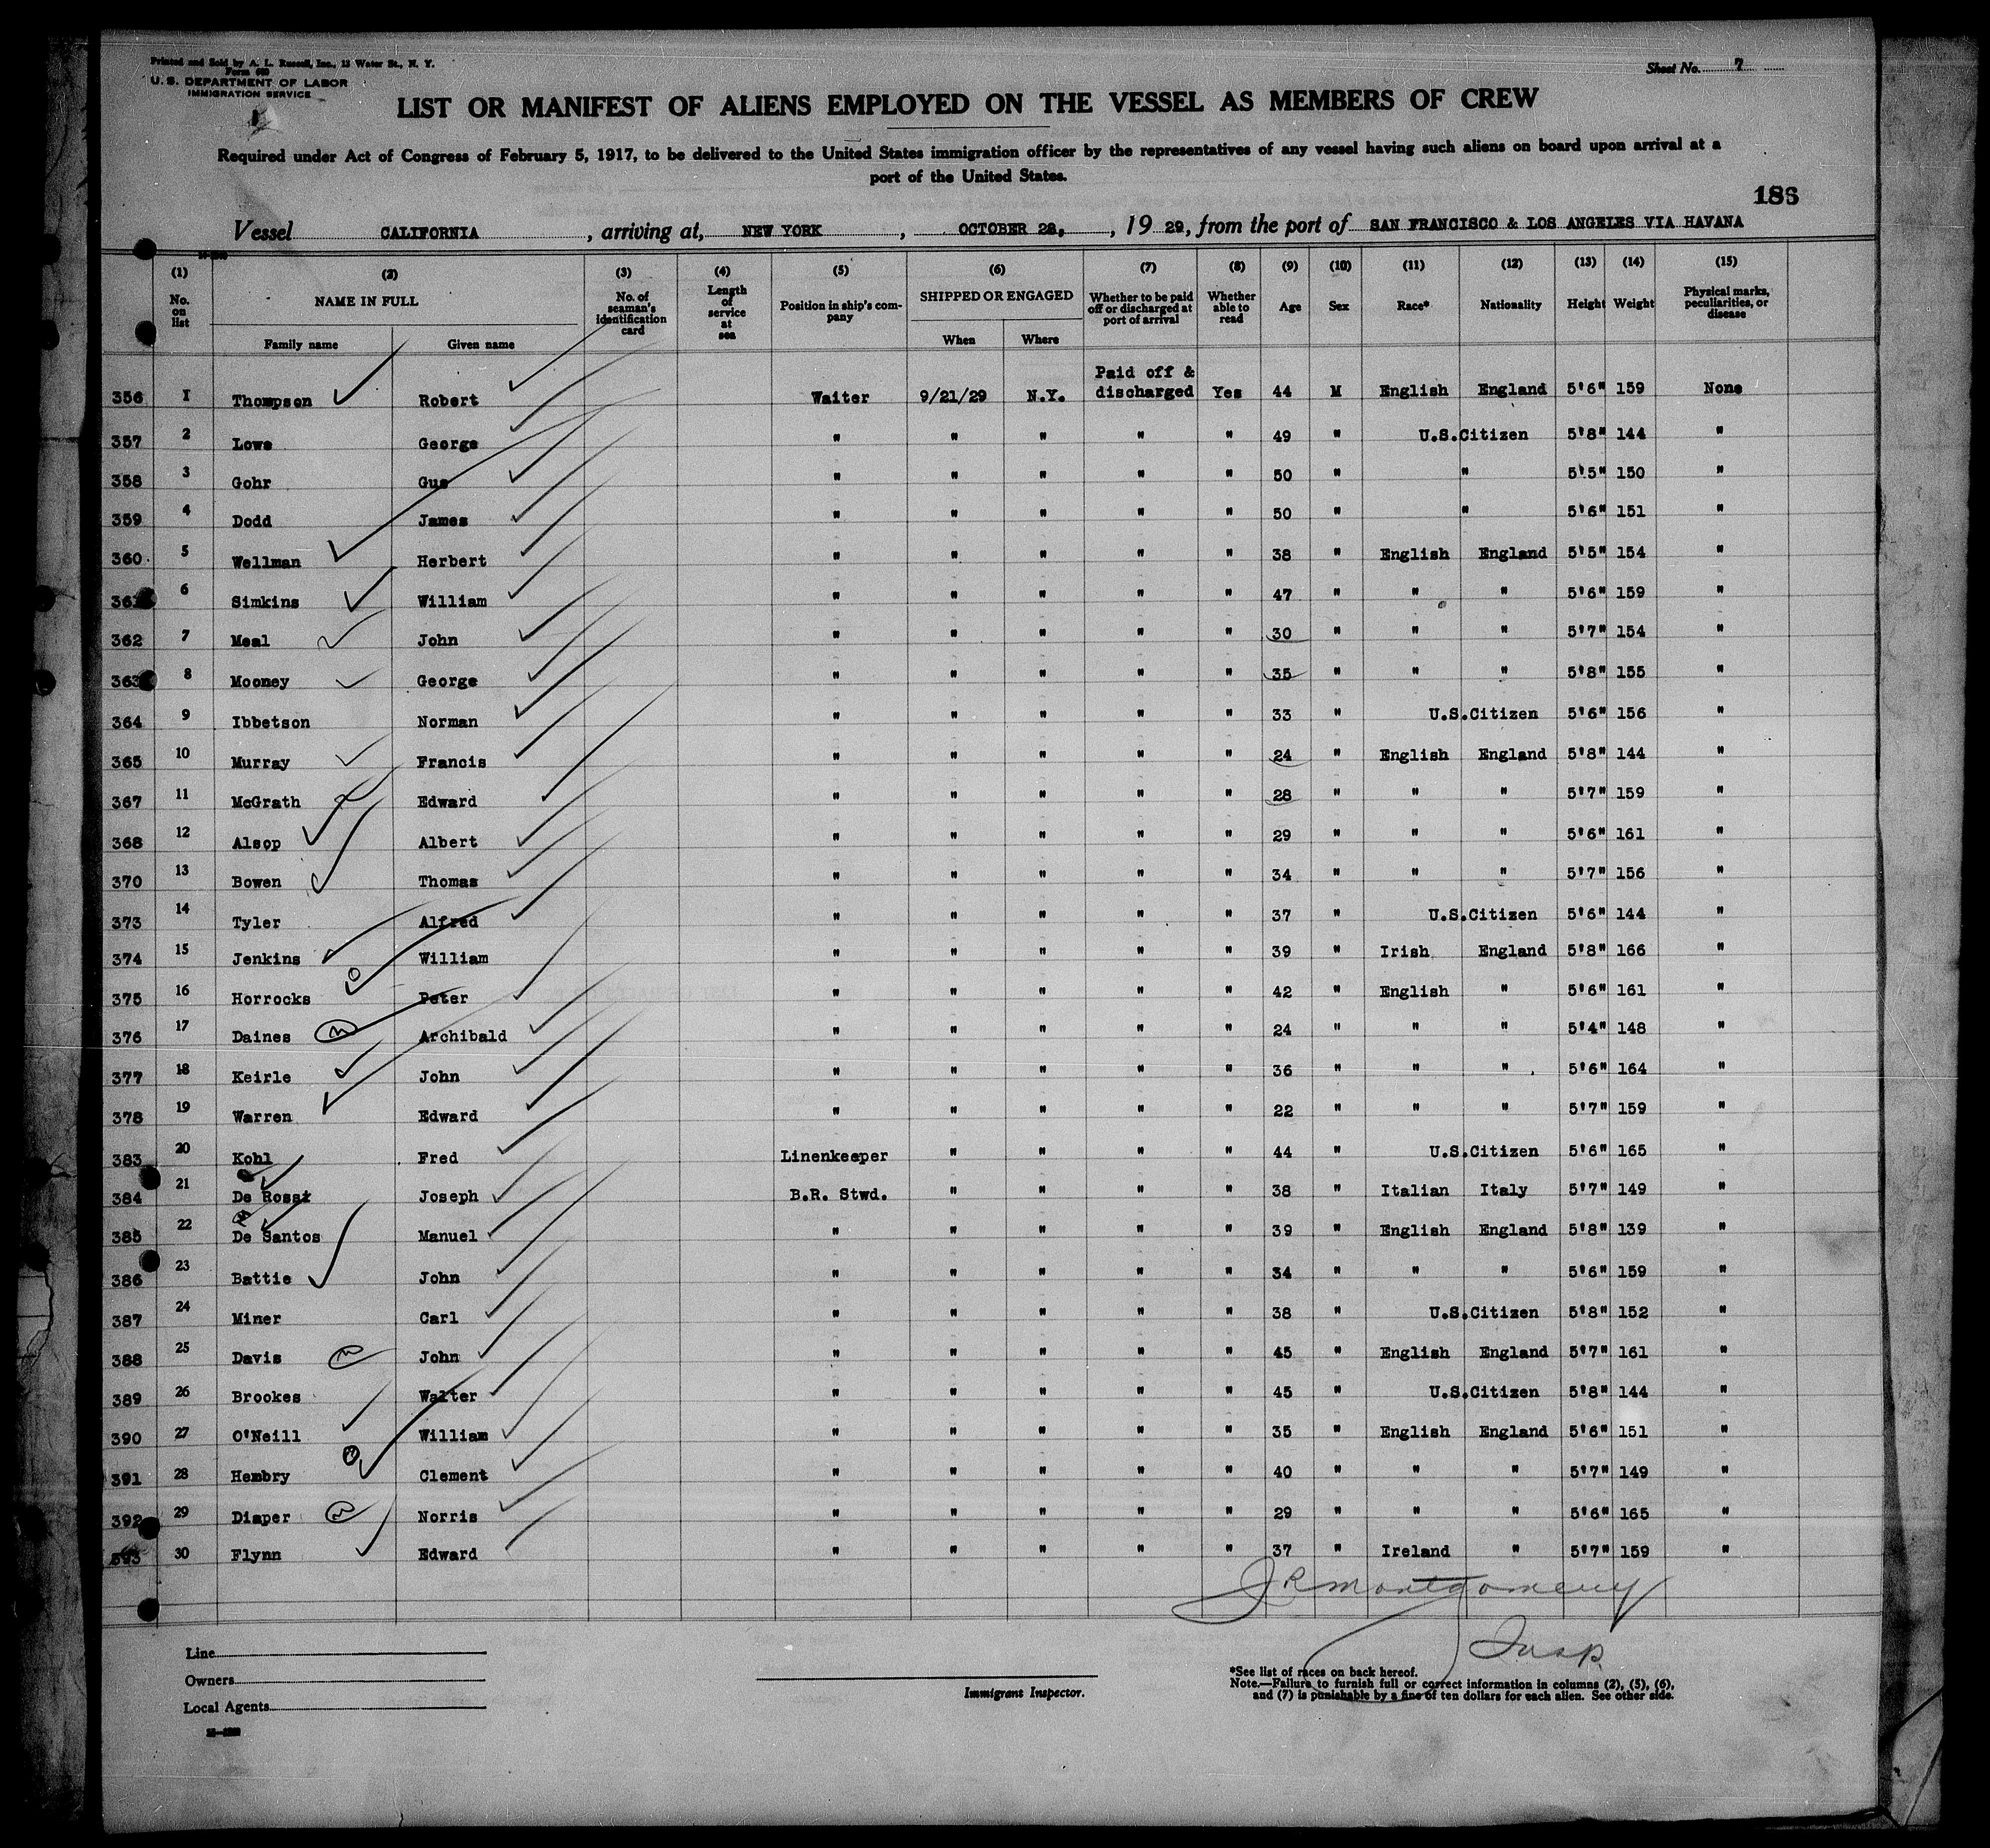 Printed and Sold by A. L. Russell, Inc., 13 Water St., N. Y.
Form 680
U. S. DEPARTMENT OF LABOR
IMMIGRATION SERVICE
Sheet No. 7
LIST OR MANIFEST OF ALIENS EMPLOYED ON THE VESSEL AS MEMBERS OF CREW
Required under Act of Congress of February 5, 1917, to be delivered to the United States immigration officer by the representatives of any vessel having such aliens on board upon arrival at a
port of the United States.
186
Vessel CALIFORNIA, arriving at, NEW YORK, OCTOBER 28, , 19 29, from the port of SAN FRANCISCO & LOS ANGELES VIA HAVANA
(1) (2) (3) (4) (5) (6) (7) (8) (9) (10) (11) (12) (13) (14) (15)
No. on list NAME IN FULL No. of seaman's identification card Length of service at sea Position in ship's company SHIPPED OR ENGAGED Whether to be paid off or discharged at port of arrival Whether able to read Age Sex Race* Nationality Height Weight Physical marks, peculiarities, or disease
Family name Given name When Where
356 1 Thompson Robert Waiter 9/21/29 N.Y. Paid off & discharged Yes 44 M English England 5'6" 159 None
357 2 Lowe George " " " " " 49 " U.S.Citizen 5'8" 144 "
358 3 Gohr Gus " " " " " 50 " " 5'5" 150 "
359 4 Dodd James " " " " " 50 " " 5'6" 151 "
360 5 Wellman Herbert " " " " " 38 " English England 5'5" 154 "
361 6 Simkins William " " " " " 47 " " " 5'6" 159 "
362 7 Meal John " " " " " 30 " " " 5'7" 154 "
363 8 Mooney George " " " " " 35 " " " 5'8" 155 "
364 9 Ibbetson Norman " " " " " 33 " U.S.Citizen 5'6" 156 "
365 10 Murray Francis " " " " " 24 " English England 5'8" 144 "
367 11 McGrath Edward " " " " " 28 " " " 5'7" 159 "
368 12 Alsop Albert " " " " " 29 " " " 5'6" 161 "
370 13 Bowen Thomas " " " " " 34 " " " 5'7" 156 "
373 14 Tyler Alfred " " " " " 37 " U.S.Citizen 5'6" 144 "
374 15 Jenkins William " " " " " 39 " Irish England 5'8" 166 "
375 16 Horrocks Peter " " " " " 42 " English " 5'6" 161 "
376 17 Daines Archibald " " " " " 24 " " " 5'4" 148 "
377 18 Keirle John " " " " " 36 " " " 5'6" 164 "
378 19 Warren Edward " " " " " 22 " " " 5'7" 159 "
383 20 Kohl Fred Linenkeeper " " " " 44 " U.S.Citizen 5'6" 165 "
384 21 De Rossi Joseph B.R. Stwd. " " " " 38 " Italian Italy 5'7" 149 "
385 22 De Santos Manuel " " " " " 39 " English England 5'8" 139 "
386 23 Battie John " " " " " 34 " " " 5'6" 159 "
387 24 Miner Carl " " " " " 38 " U.S.Citizen 5'8" 152 "
388 25 Davis John " " " " " 45 " English England 5'7" 161 "
389 26 Brookes Walter " " " " " 45 " U.S.Citizen 5'8" 144 "
390 27 O'Neill William " " " " " 35 " English England 5'6" 151 "
391 28 Hembry Clement " " " " " 40 " " " 5'7" 149 "
392 29 Diaper Norris " " " " " 29 " " " 5'6" 165 "
393 30 Flynn Edward " " " " " 37 " Ireland " 5'7" 159 "
J R Montgomery
Insp.
Line
Owners
Local Agents
Immigrant Inspector.
*See list of races on back hereof.
Note.—Failure to furnish full or correct information in columns (2), (5), (6),
and (7) is punishable by a fine of ten dollars for each alien. See other side.